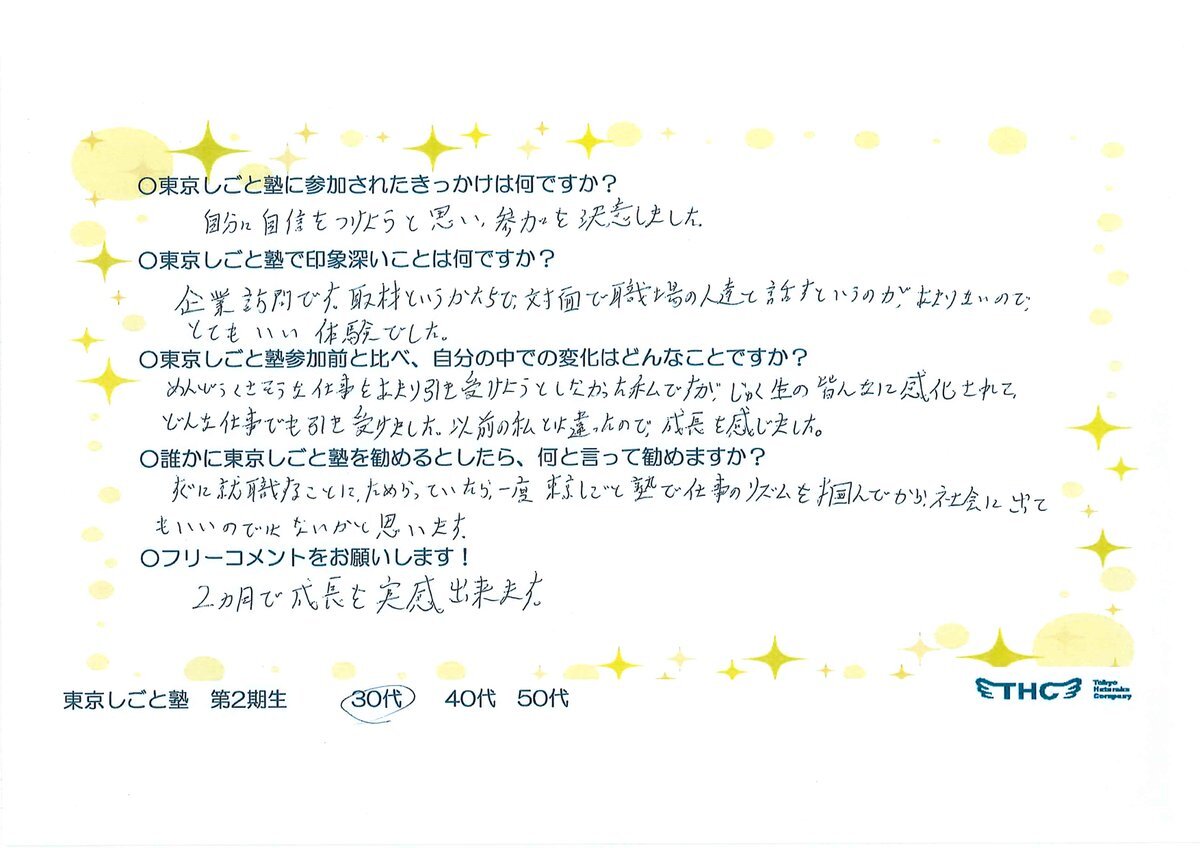 ○東京しごと塾に参加されたきっかけは何ですか？
自分に自信をつけようと思い、参加を決意しました。
○東京しごと塾で印象深いことは何ですか？
企業訪問です。取材というかたちで、対面で職場の人達と話すというのが、あまりないので、
とてもいい体験でした。
○東京しごと塾参加前と比べ、自分の中での変化はどんなことですか？
めんどうくさそうな仕事をあまり引き受けようとしなかった私ですが、じゅく生の皆んなに感化されて、
どんな仕事でも引き受けました。以前の私とは違ったので、成長を感じました。
○誰かに東京しごと塾を勧めるとしたら、何と言って勧めますか？
すぐに就職することに、ためらっていたら、一度東京しごと塾で仕事のリズムを掴んでから、社会に出て
もいいのではないかと思います。
○フリーコメントをお願いします！
2ヵ月で成長を実感出来ます。
東京しごと塾　第2期生　30代　40代　50代
THC Tokyo
Hataraku
Company